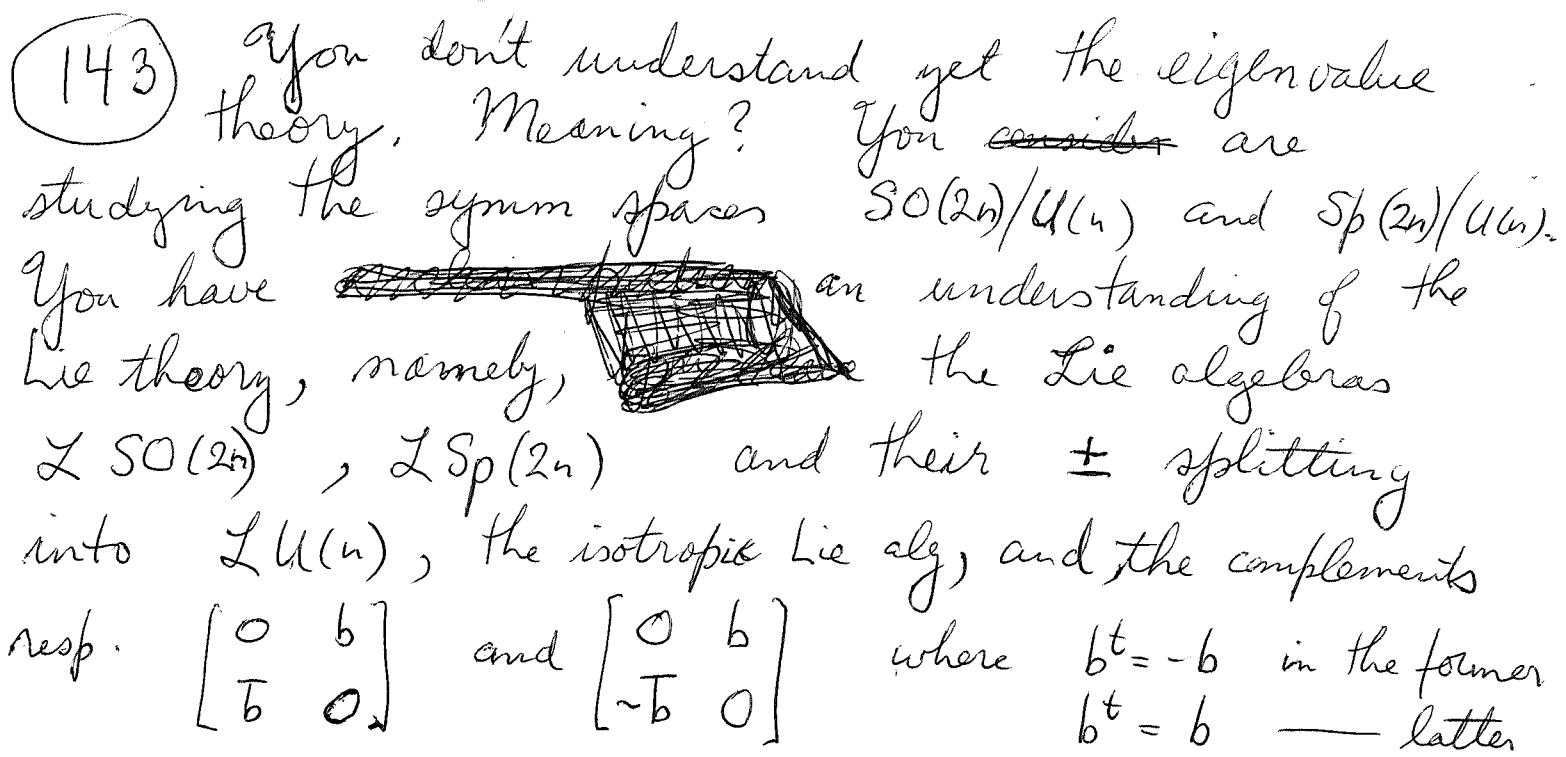 143 You don't understand yet the eigenvalue
theory. Meaning? You consider are
studying the symm spaces SO(2n)/U(n) and Sp(2n)/U(n).
You have an understanding of the
Lie theory, namely, the Lie algebras
ℒ SO(2n), ℒ Sp(2n) and their ± splitting
into ℒ U(n), the isotropic Lie alg, and the complements
resp. [0 b; b̄ 0] and [0 b; -b̄ 0] where bᵗ = -b in the former
bᵗ = b — latter